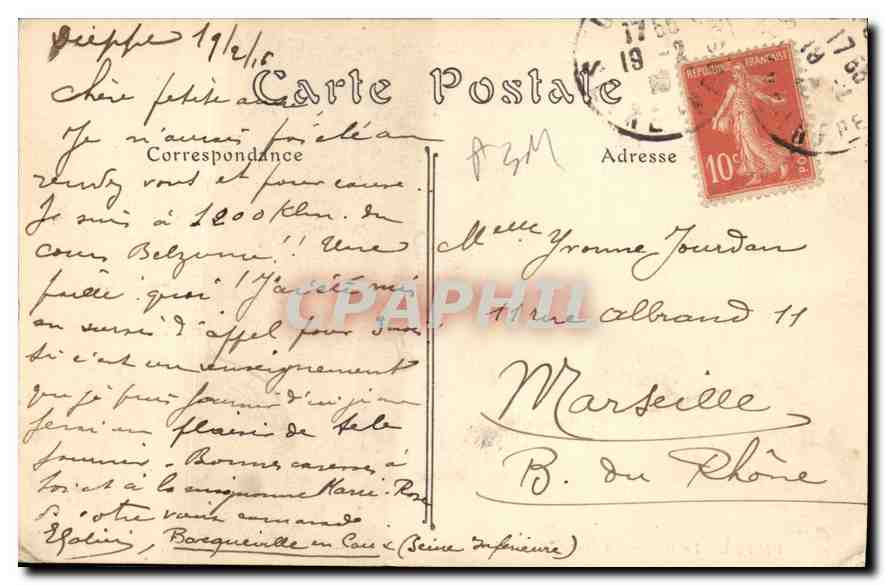 Dieppe 19/2/16
Carte Postale
Chère petite amie
Correspondance
Adresse
Je n'aurais pas été au
rendez vous et pour cause.
Je suis à 1200 Klm. du
cours Belzunce!! Une
paille quoi! J'ai été mis
en sursis d'appel pour 3 mois
Si c'est un renseignement
que je puis fournir
ferai un plaisir de te le
fournir. Bonnes caresses à
toi et à la mignonne Marie-Rose
de votre vieux camarade
Bacqueville en Caux (Seine Inférieure)
A3M
REPUBLIQUE FRANÇAISE
10c
POSTES
17 55
19 - 2
DIEPPE
Melle Yvonne Jourdan
11 rue Albrand 11
Marseille
B. du Rhône
CPAPHIL